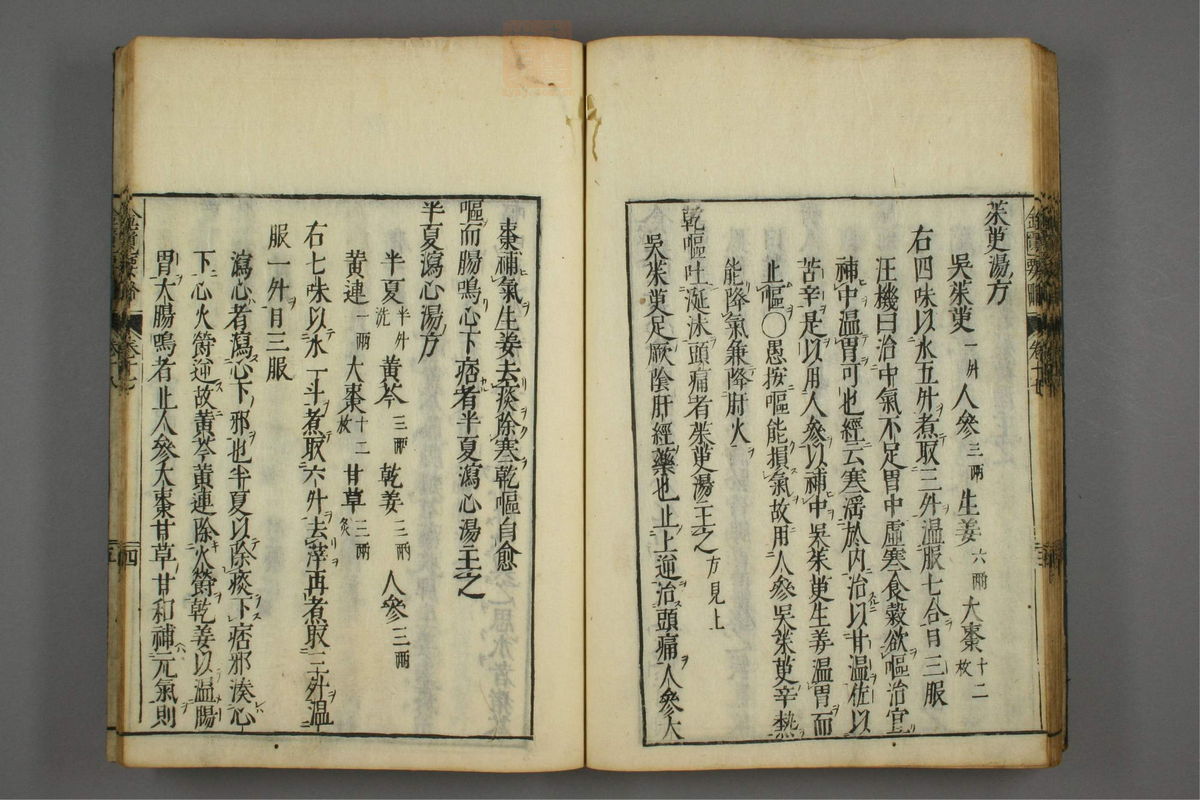 茱萸湯方
吳茱萸一升人參三兩生姜六兩大棗十二枚
右四味以水五升煮取三升温服七合日三服
汪機曰治中氣不足胃中虛寒食穀欲嘔治宜
補中温胃可也經云寒滛於内治以甘温佐以
苦辛是以用人參以補中吳茱萸生姜温胃而
止嘔〇愚按嘔能損氣故用人參吳茱萸辛熱
能降氣兼降肝火
乾嘔吐涎沫頭痛者茱萸湯主之方見上
吳茱萸足厥陰肝經藥也止上逆治頭痛人參大
棗補氣生姜去痰除寒乾嘔自愈
嘔而腸鳴心下痞者半夏瀉心湯主之
半夏瀉心湯方
半夏半升洗黃芩三兩乾姜三兩人參三兩
黃連一兩大棗十二枚甘草三兩炙
右七味以水一斗煮取六升去滓再煮取三升温
服一升日三服
瀉心者瀉心下邪也半夏以除痰下痞邪湊心
下心火鬱逆故黃芩黃連除火鬱乾姜以温腸
胃大腸鳴者止人參大棗甘草甘和補元氣則
卷十七
四